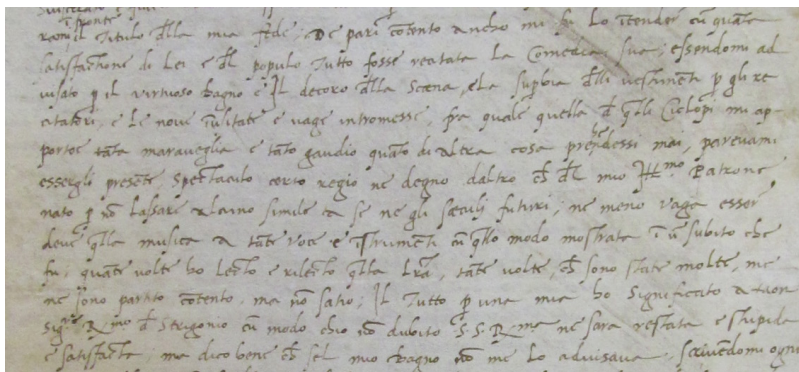 ramil Titulo dlla mia fede; De pari cõtento ancho mi fu lo ĩtender cũ quãta
satisfactione di Lei e dl populo tutto fosse recitata la Comedia sua; essendomi ad
visato p il virtuoso Bagno e Il decoro dlla Scæna, e la supbia dlli vestimẽti p gli re
citatori, e le nove ĩusitate e vage intromesse, fra quale quella d qlli Ciclopi mi ap
portoe tãta maraveglia e tãto gaudio quãto di altra cosa prehẽdessi mai, parevami
essergli presẽte, Spectaculo certo regio ne degno daltro ch dl mio Ill.mo Patrone
nato p nõ lassare alcuno simile a se ne gli sæculi futuri; ne meno vaga esser
deve qlla musica a tãte voce e ĩstrumẽti cũ qllo modo mostrata ĩ ũ subito che
fu; quãte volte ho lecto e rilecto qlla lr̃a, tãte volte, ch sono state molte, me
ne sono partito cõtento, ma nõ satio; Il tutto p una mia ho significato a
Sig.re R.mo d Strigonio cũ modo chio nõ dubito S. S. R.ma ne sara restata e stupida
e satisfacta; ma dico bene ch sel mio Bagno nõ me lo advisava, scrivẽdomi ogni